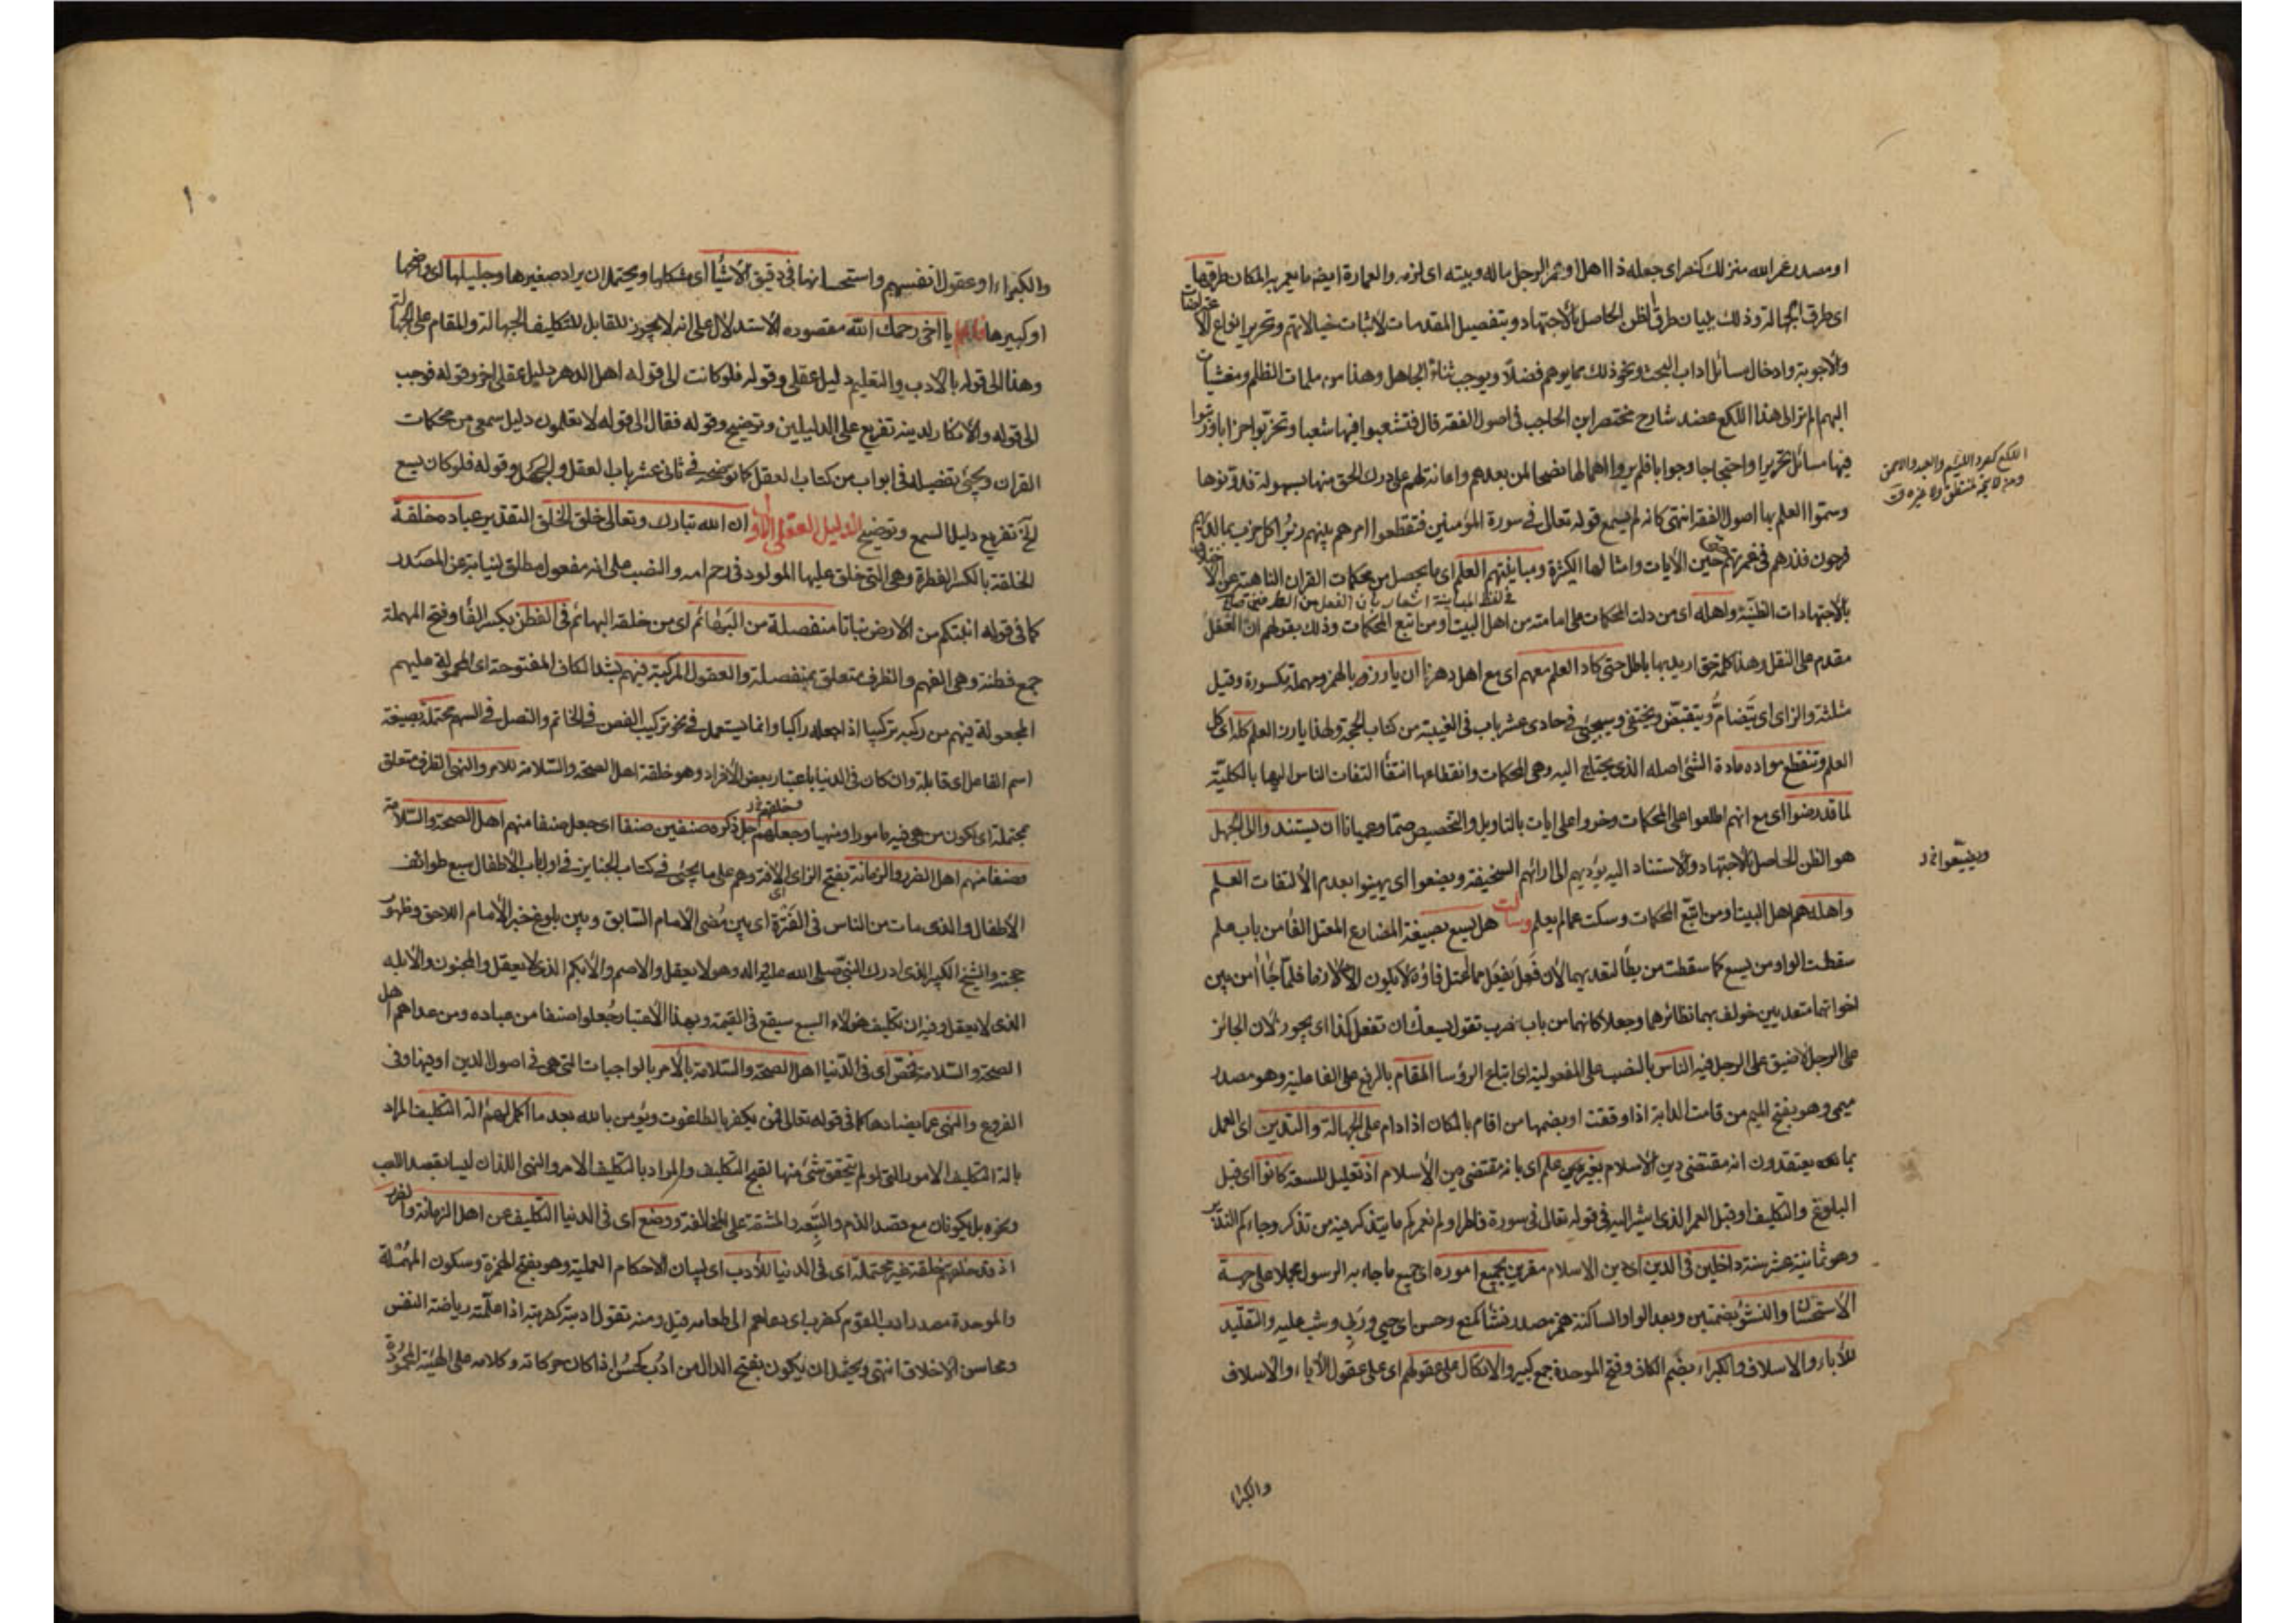 او مصدر عمر الله منزلك كنصر اى جعله ذا اهل او عمر الرجل ماله وبيته اى لزمه والعمارة ايضا ما يعمر به المكان طرقها
اى طرق الجهالة وذلك ببيان طرق الظن الحاصل بالاجتهاد وبتفصيل المقدمات لاثبات خيالاتهم وتحرير انواع الاعتراضات
والاجوبة وادخال مسائل اداب البحث ونحو ذلك مما يوهم فضلا ويوجب ثناء الجاهل وهذا من ملمات الظلم ومغشيات
البهم الم تر الى هذا اللكع عضد شارح مختصر ابن الحاجب فى اصول الفقه قال فتشعبوا فيها شعبا وتحزبوا احزابا ورتبوا
فيها مسائل تحريرا واحتجاجا وجوابا فلم يروا اهمالها نصحا لمن بعدهم واعانة لهم على درك الحق منها بسهولة فدونوها
اللكع كصرد اللئيم والعبد والاحمق
ومن لا يتجه لمنطق ولا غيره ق
وسموا العلم بها اصول الفقه انتهى كانه لم يسمع قوله تعالى فى سورة المؤمنين فتقطعوا امرهم بينهم زبرا كل حزب بما لديهم
فرحون فذرهم فى غمرتهم حتى حين الايات وامثالها الكثيرة ومباينتهم العلم اى ما يحصل من محكمات القران الناهية عن الاختلاف
بالاجتهادات الظنية واهله اى من دلت المحكمات على امامته من اهل البيت او من اتبع المحكمات وذلك بقولهم ان العقل
مقدم على النقل وهذا كلمة حق اريد بها باطل حتى كاد العلم معهم اى مع اهل دهرنا ان يارز بالهمز ومهملة مكسورة وقيل
مثلثة والزاى اى يتضام ويتقبض ويختفى وسيجيئ فى حادى عشر باب فى الغيبة من كتاب الحجة ولهذا يارز العلم كله اى كل
العلم وتنقطع مواده مادة الشئ اصله الذى يحتاج اليه وهى المحكمات وانقطاعها انتفاء التفات الناس اليها بالكلية
لما قد رضوا اى مع انهم اطلعوا على المحكمات وخروا على ايات بالتاويل والتخصيص صما وعميانا ان يستندوا الى الجهل
هو الظن الحاصل بالاجتهاد والاستناد اليه يؤديهم الى ارائهم السخيفة ويضعوا اى يهينوا بعدم الالتفات العلم
ويضيعوا خ د
واهله هم اهل البيت او من اتبع المحكمات وسكت عما لم يعلم وسالت هل يسع بصيغة المضارع المعتل الفا من باب علم
سقطت الواو من يسع كما سقطت من يطأ لتعديهما لان فعل يفعل مما اعتل فاؤه لا يكون الا لازما فلما جاءا من بين
اخواتهما متعديين خولف بهما نظائرهما وجعلا كانهما من باب ضرب تقول يسعك ان تفعل كذا اى يجوز لان الجائز
على الرجل لا ضيق على الرجل فيه الناس بالنصب على المفعولية اى اتباع الرؤسا المقام بالرفع على الفاعلية وهو مصدر
ميمى وهو بفتح الميم من قامت الدابة اذا وقفت او بضمها من اقام بالمكان اذا دام على الجهالة والتدين اى العمل
بما يعتقدون انه مقتضى دين الاسلام بغير علم اى بانه مقتضى دين الاسلام اذ تعليل للسعة كانوا اى قبل
البلوغ والتكليف او قبل العمر الذى اشير اليه فى قوله تعالى فى سورة فاطر اولم نعمركم ما يتذكر فيه من تذكر وجاءكم النذير
وهو ثمانية عشر سنة داخلين فى الدين اى دين الاسلام مقرين بجميع اموره اى جميع ما جاء به الرسول مجملا على جهة
الاستحسان والنشوء بضمتين وبعد الواو الساكنة همز مصدر نشأ كمنع وحسن اى حيى وربى وشب عليه والتقليد
للآباء والاسلاف والكبراء بضم الكاف وفتح الموحدة جمع كبير والاتكال على عقولهم اى على عقول الآباء والاسلاف
والكبراء
١٠
والكبراء او عقول انفسهم واستحساناتها فى دقيق الاشياء اى مشكلها ويحتمل ان يراد صغيرها وجليلها اى واضحها
او كبيرها فاعلم يا اخى رحمك الله مقصوده الاستدلال على انه لا يجوز للقابل للتكليف الجهالة والمقام على الجهالة
وهذا الى قوله بالادب والتعليم دليل عقلى وقوله فلو كانت الى قوله اهل الدهر دليل عقلى اخر وقوله فوجب
الى قوله والانكار لدينه تفريع على الدليلين وتوضيح وقوله فقال الى قوله لا تعلمون دليل سمعى من محكمات
القران ويجيئ تفصيله فى ابواب من كتاب العقل كما نوضحه فى ثانى عشر باب العقل والجهل وقوله فلو كان يسع
الخ تفريع دليل السمع وتوضيح الدليل العقلى الاول ان الله تبارك وتعالى خلق الخلق التقدير عباده خلقة
الخلقة بالكسر الفطرة وهى التى خلق عليها المولود فى رحم امه والنصب على انه مفعول مطلق لنيابته عن المصدر
كما فى قوله انبتكم من الارض نباتا منفصلة من البهائم اى من خلقة البهائم فى الفطن بكسر الفا وفتح المهملة
جمع فطنة وهى الفهم والظرف متعلق بمنفصلة والعقول المركبة فيهم بشد الكاف المفتوحة اى المحمولة عليهم
المجعولة فيهم من ركبه تركيبا اذا جعله راكبا وانما يستعمل فى نحو تركيب الفص فى الخاتم والنصل فى السهم محتملة بصيغة
اسم الفاعل اى قابلة وان كان فى الدنيا باعتبار بعض الافراد وهو خلقة اهل الصحة والسلامة للامر والنهى الظرف متعلق
محتملة اى يكون من هى فيه مامورا ومنهيا وجعلهم جل ذكره صنفين صنفا اى جعل صنفا منهم اهل الصحة والسلامة
وصنفا منهم اهل الضرر والزمانة بفتح الزاى اى الآفة وهم على ما يجيئ فى كتاب الجنايز فى اول باب الاطفال سبع طوائف
الاطفال والذى مات من الناس فى الفترة اى بين مضى الامام السابق وبين بلوغ خبر الامام اللاحق وظهور
حجته والشيخ الكبير الذى ادرك النبى صلى الله عليه واله وهو لا يعقل والاصم والابكم الذى لا يعقل والمجنون والابله
الذى لا يعقل وفيه ان تكليف هؤلاء السبع سيقع فى القيمة وبهذا الاعتبار جعلوا صنفا من عباده ومن عداهم اهل
الصحة والسلامة فخص اى فى الدنيا اهل الصحة والسلامة بالامر بالواجبات التى هى فى اصول الدين او فيها وفى
الفروع والنهى عما يضادها كما فى قوله تعالى فمن يكفر بالطاغوت ويؤمن بالله بعد ما اكمل لهم آلة التكليف المراد
بآلة التكليف الامور التى لو لم يتحقق شئ منها لقبح التكليف والمراد بالتكليف الامر والنهى اللذان ليسا بقصد اللعب
ونحوه بل يكونان مع قصد الذم والتبعة والمشقة على المخالفة ووضع اى فى الدنيا التكليف عن اهل الزمانة والضرر
اذ قد خلقهم خلقة غير محتملة اى فى الدنيا للادب اى لبيان الاحكام العملية وهو بفتح الهمزة وسكون المهملة
والموحدة مصدر ادب القوم كضرب اى دعاهم الى طعامه قيل ومنه تقول ادبته كضربته اذا علمته رياضة النفس
ومحاسن الاخلاق انتهى ويحتمل ان يكون بفتح الدال من ادب كحسن اذا كان حركاته وكلامه على الهيئة المحمودة